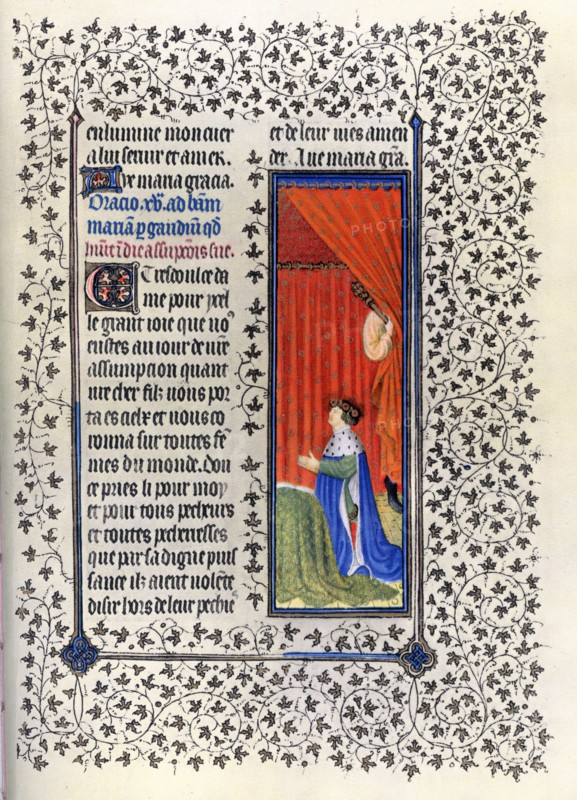 enlumine mon cuer
a lui seruir et amer.
Aue maria gracia.
Oracio .xv. ad btãm
mariam p gaudiũ qd
huit ĩ die assupciõis sue.
E Tresdoulce da
me pour ycel
le grant ioie que uo9
eustes au iour de ure
assumpcion quant
ure cher filz uous por
ta es cielx et uous co
ronna sur toutes fe
mes du monde. Dou
ce pries li pour moy
et pour tous pecheurs
et toutes pecherresses
que par sa digne puis
sance ilz aient uolẽte
dissir hors de leur pechies
et de leur uies amen
der. Aue maria gr̃a.
PHOTO
PHOTO